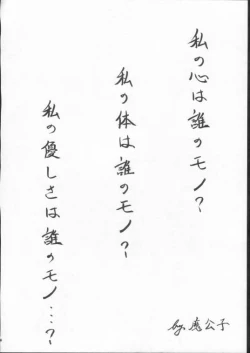 私の心は誰のモノ?
私の体は誰のモノ?
私の優しさは誰のモノ…?
by.虎公子